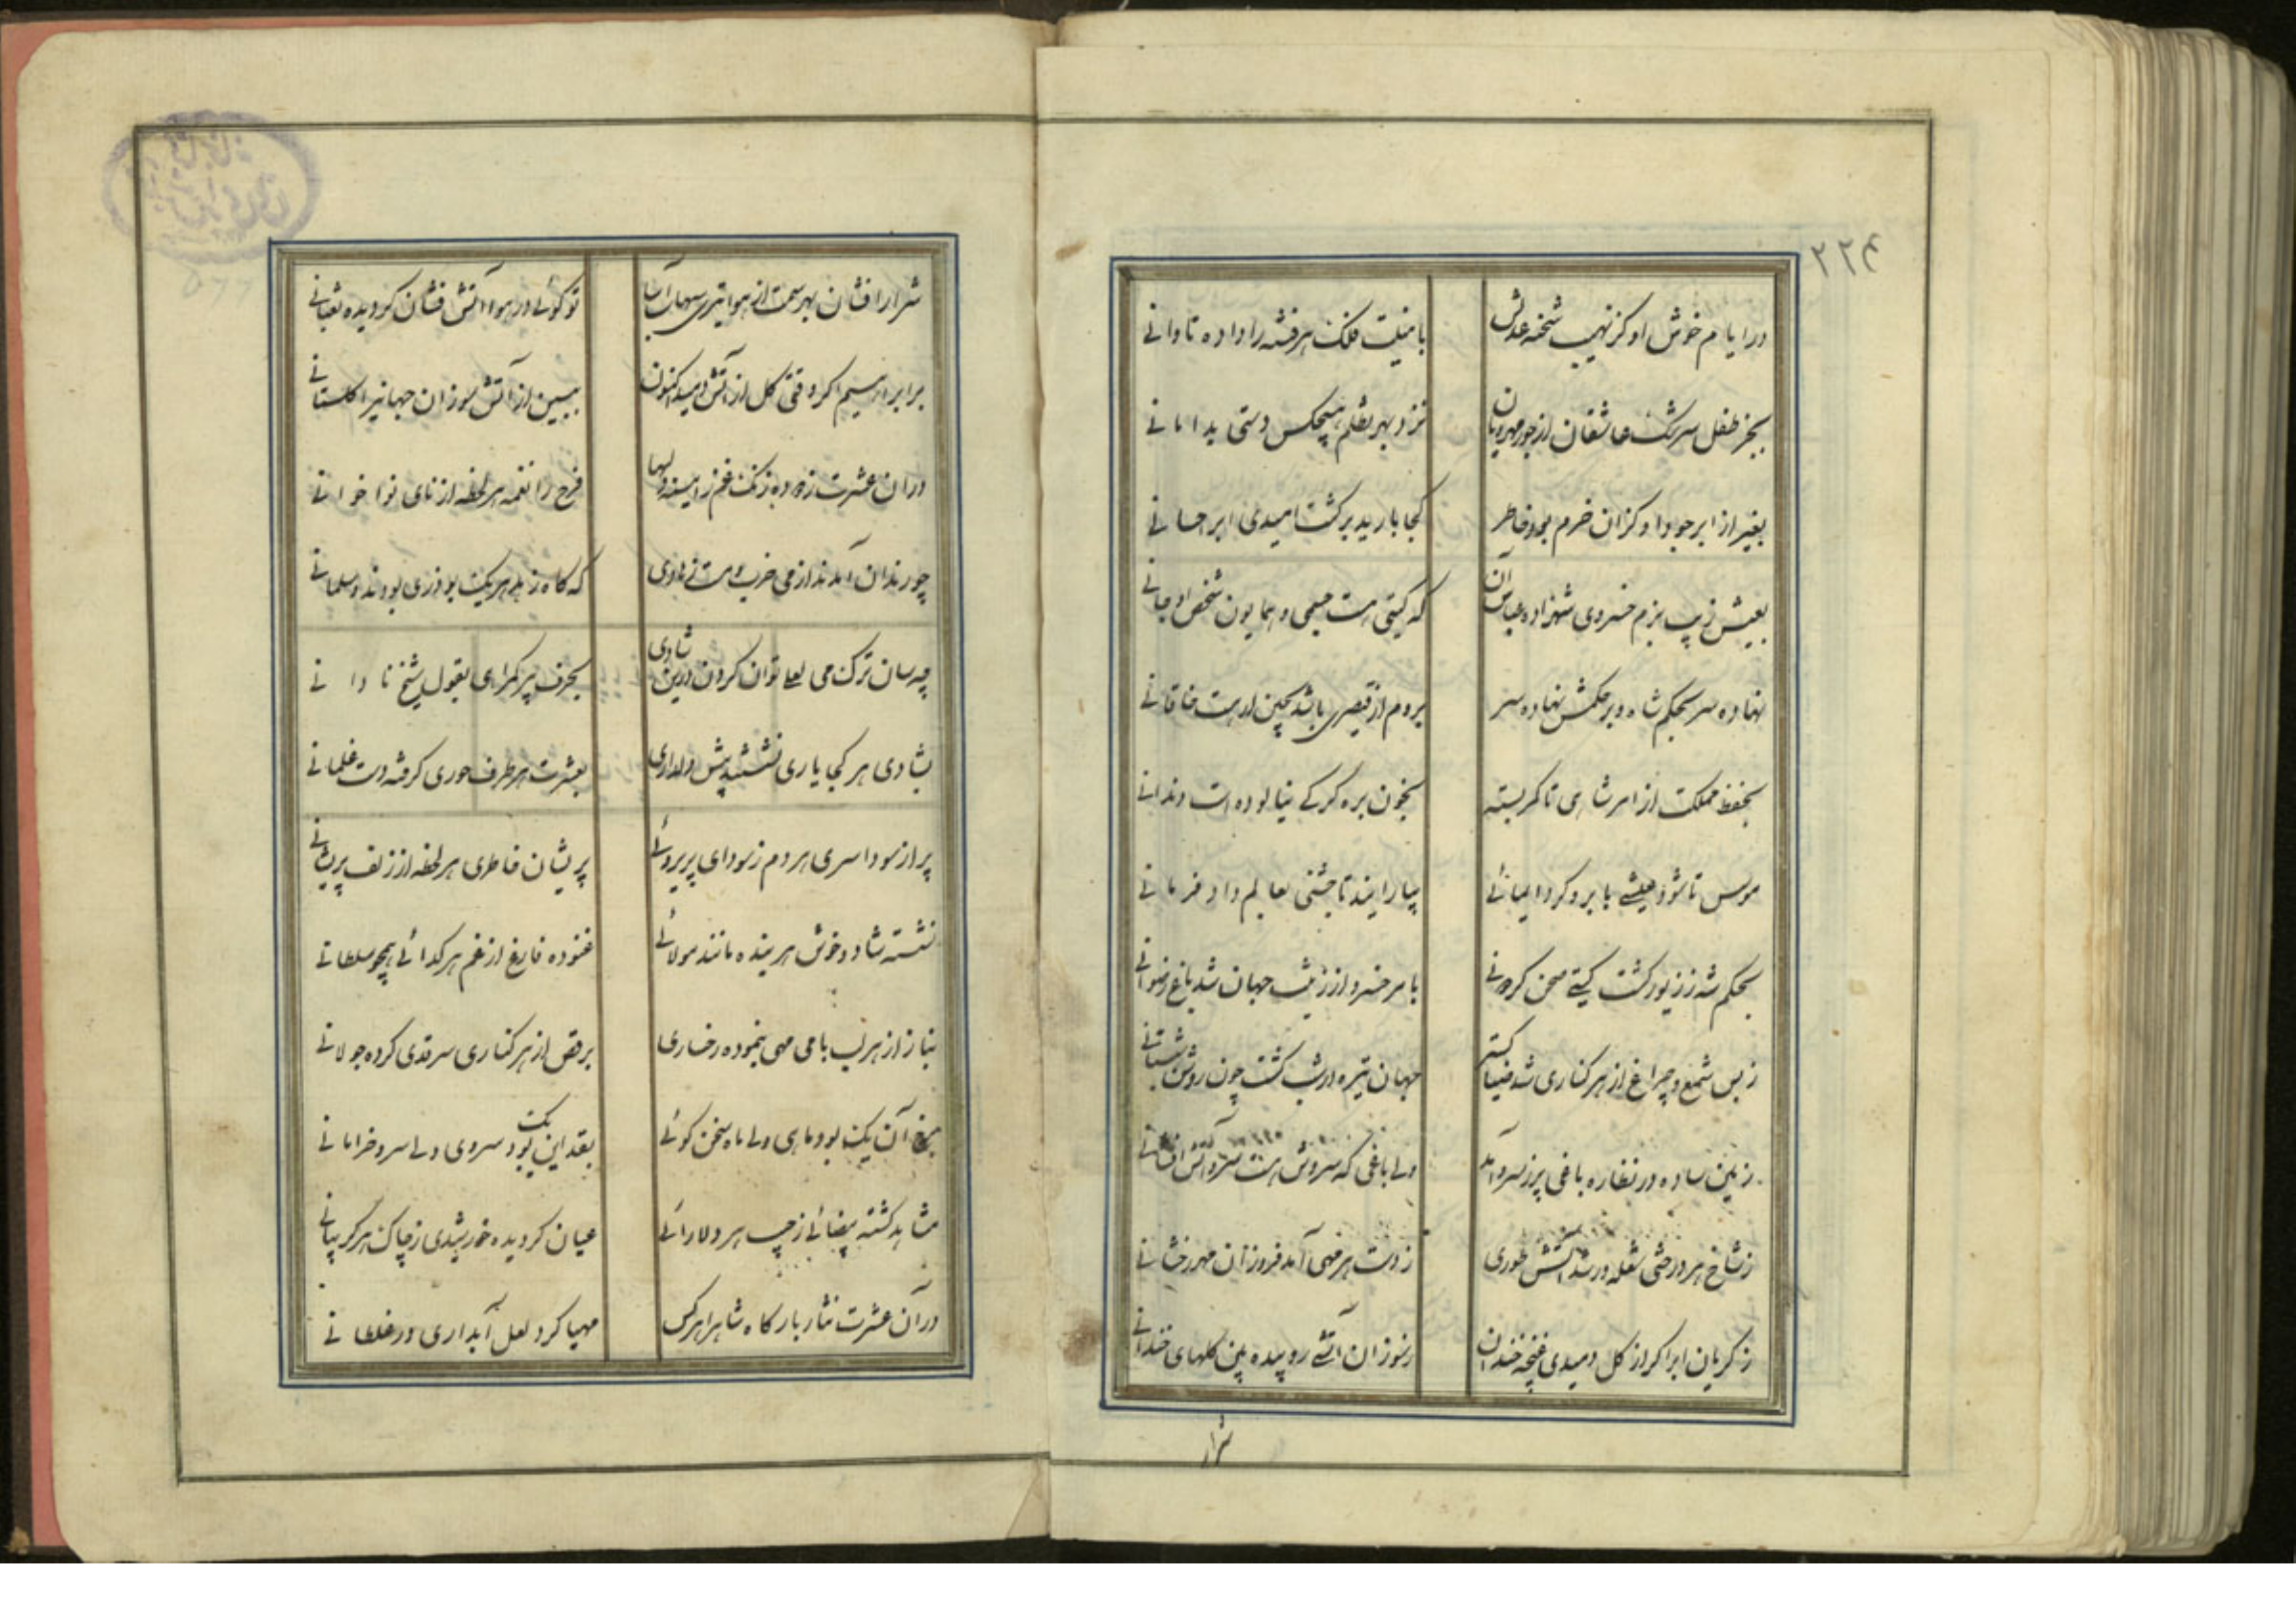 ۲۲۴
در ایام خوش او کز نهیب شحنه عدلش
بامنیت فلک هر فتنه را داده تاوانی
بجز طفل سرشک عاشقان از جور مهرویان
نزد بهر تظلم هیچکس دستی بدامانی
بغیر از ابر جود او کزان خرم بود خاطر
کجا بارید بر کشت امیدی ابر احسانی
بعیش زیب بزم خسروی شهزاده عباس آن
که کیتی هست جسمی و همایون شخص او جانی
نهاده سر بحکم شاه و بر حکمش نهاده سر
بروم از قیصری باشد بچین ار هست خاقانی
بحفظ مملکت از امر شاهی تا کمر بسته
بخون بره کرکی نیالوده است دندانی
بیارایند تا جشنی بعالم داد فرمانی
بحکم شه ز زیور کشت کیتی صحن
بامر خسرو از زینت جهان شد باغ رضوانی
ز بس شمع و چراغ از هر کناری شد ضیا کستر
جهان تیره ار شب کشت چون روشن شبستانی
زمین ساده در نظاره باغی پر ز سرو آمد
ولی باغی که سروش هست سرو آتش افشانی
ز شاخ هر درختی شعله ور شد آتش طوری
ز دست هر مهی آمد فروزان مهر رخشانی
ز کریان ابر اکر از کل دمیدی غنچه خندان
ز سوزان آتشی روییده بین کلهای خندانی
شرار
شرار افشان بهر سمت از هوا تیری شهاب آسا
تو کوئی در هوا آتش فشان کردیده ثعبانی
برابراهیم اکر وقتی کل از آتش دمید اکنون
ببین از آتش سوزان جهانیرا کلستانی
در ان عشرت زدوده زنک غم ز آیینه دلها
فرح زا نغمه هر لحظه از نای نوا خوانی
چو رندان آمدند از می خراب و مست
که کاه زهد هر یک بوذری بودند و سلمانی
چه سان ترک می لعلی توان کردن درین شادی
بحرف پیر کمراهی بقول شیخ نادانی
بشادی هر کجا یاری نشسته پیش دلداری
بعشرت هر طرف حوری کرفته دست غلمانی
پر از سودا سری هر دم ز سودای پریروئی
پریشان خاطری هر لحظه از زلف پریشانی
نشسته شاد و خوش هر بنده مانند مولائی
غنوده فارغ از غم هر کدائی همچو سلطانی
بناز از هر لب بامی مهی بنموده رخساری
برقص از هر کناری سرو قدی کرده جولانی
برخ آن یک بود ماهی ولی ماه سخن کوئی
بقد این یک بود سروی ولی سرو خرامانی
مشاهد کشته بیضائی ز جیب هر دلارائی
عیان کردیده خورشیدی ز چاک هر کریبانی
در آن عشرت نثار بارکاه شاه را هر کس
مهیا کرد لعل آبداری در غلطانی